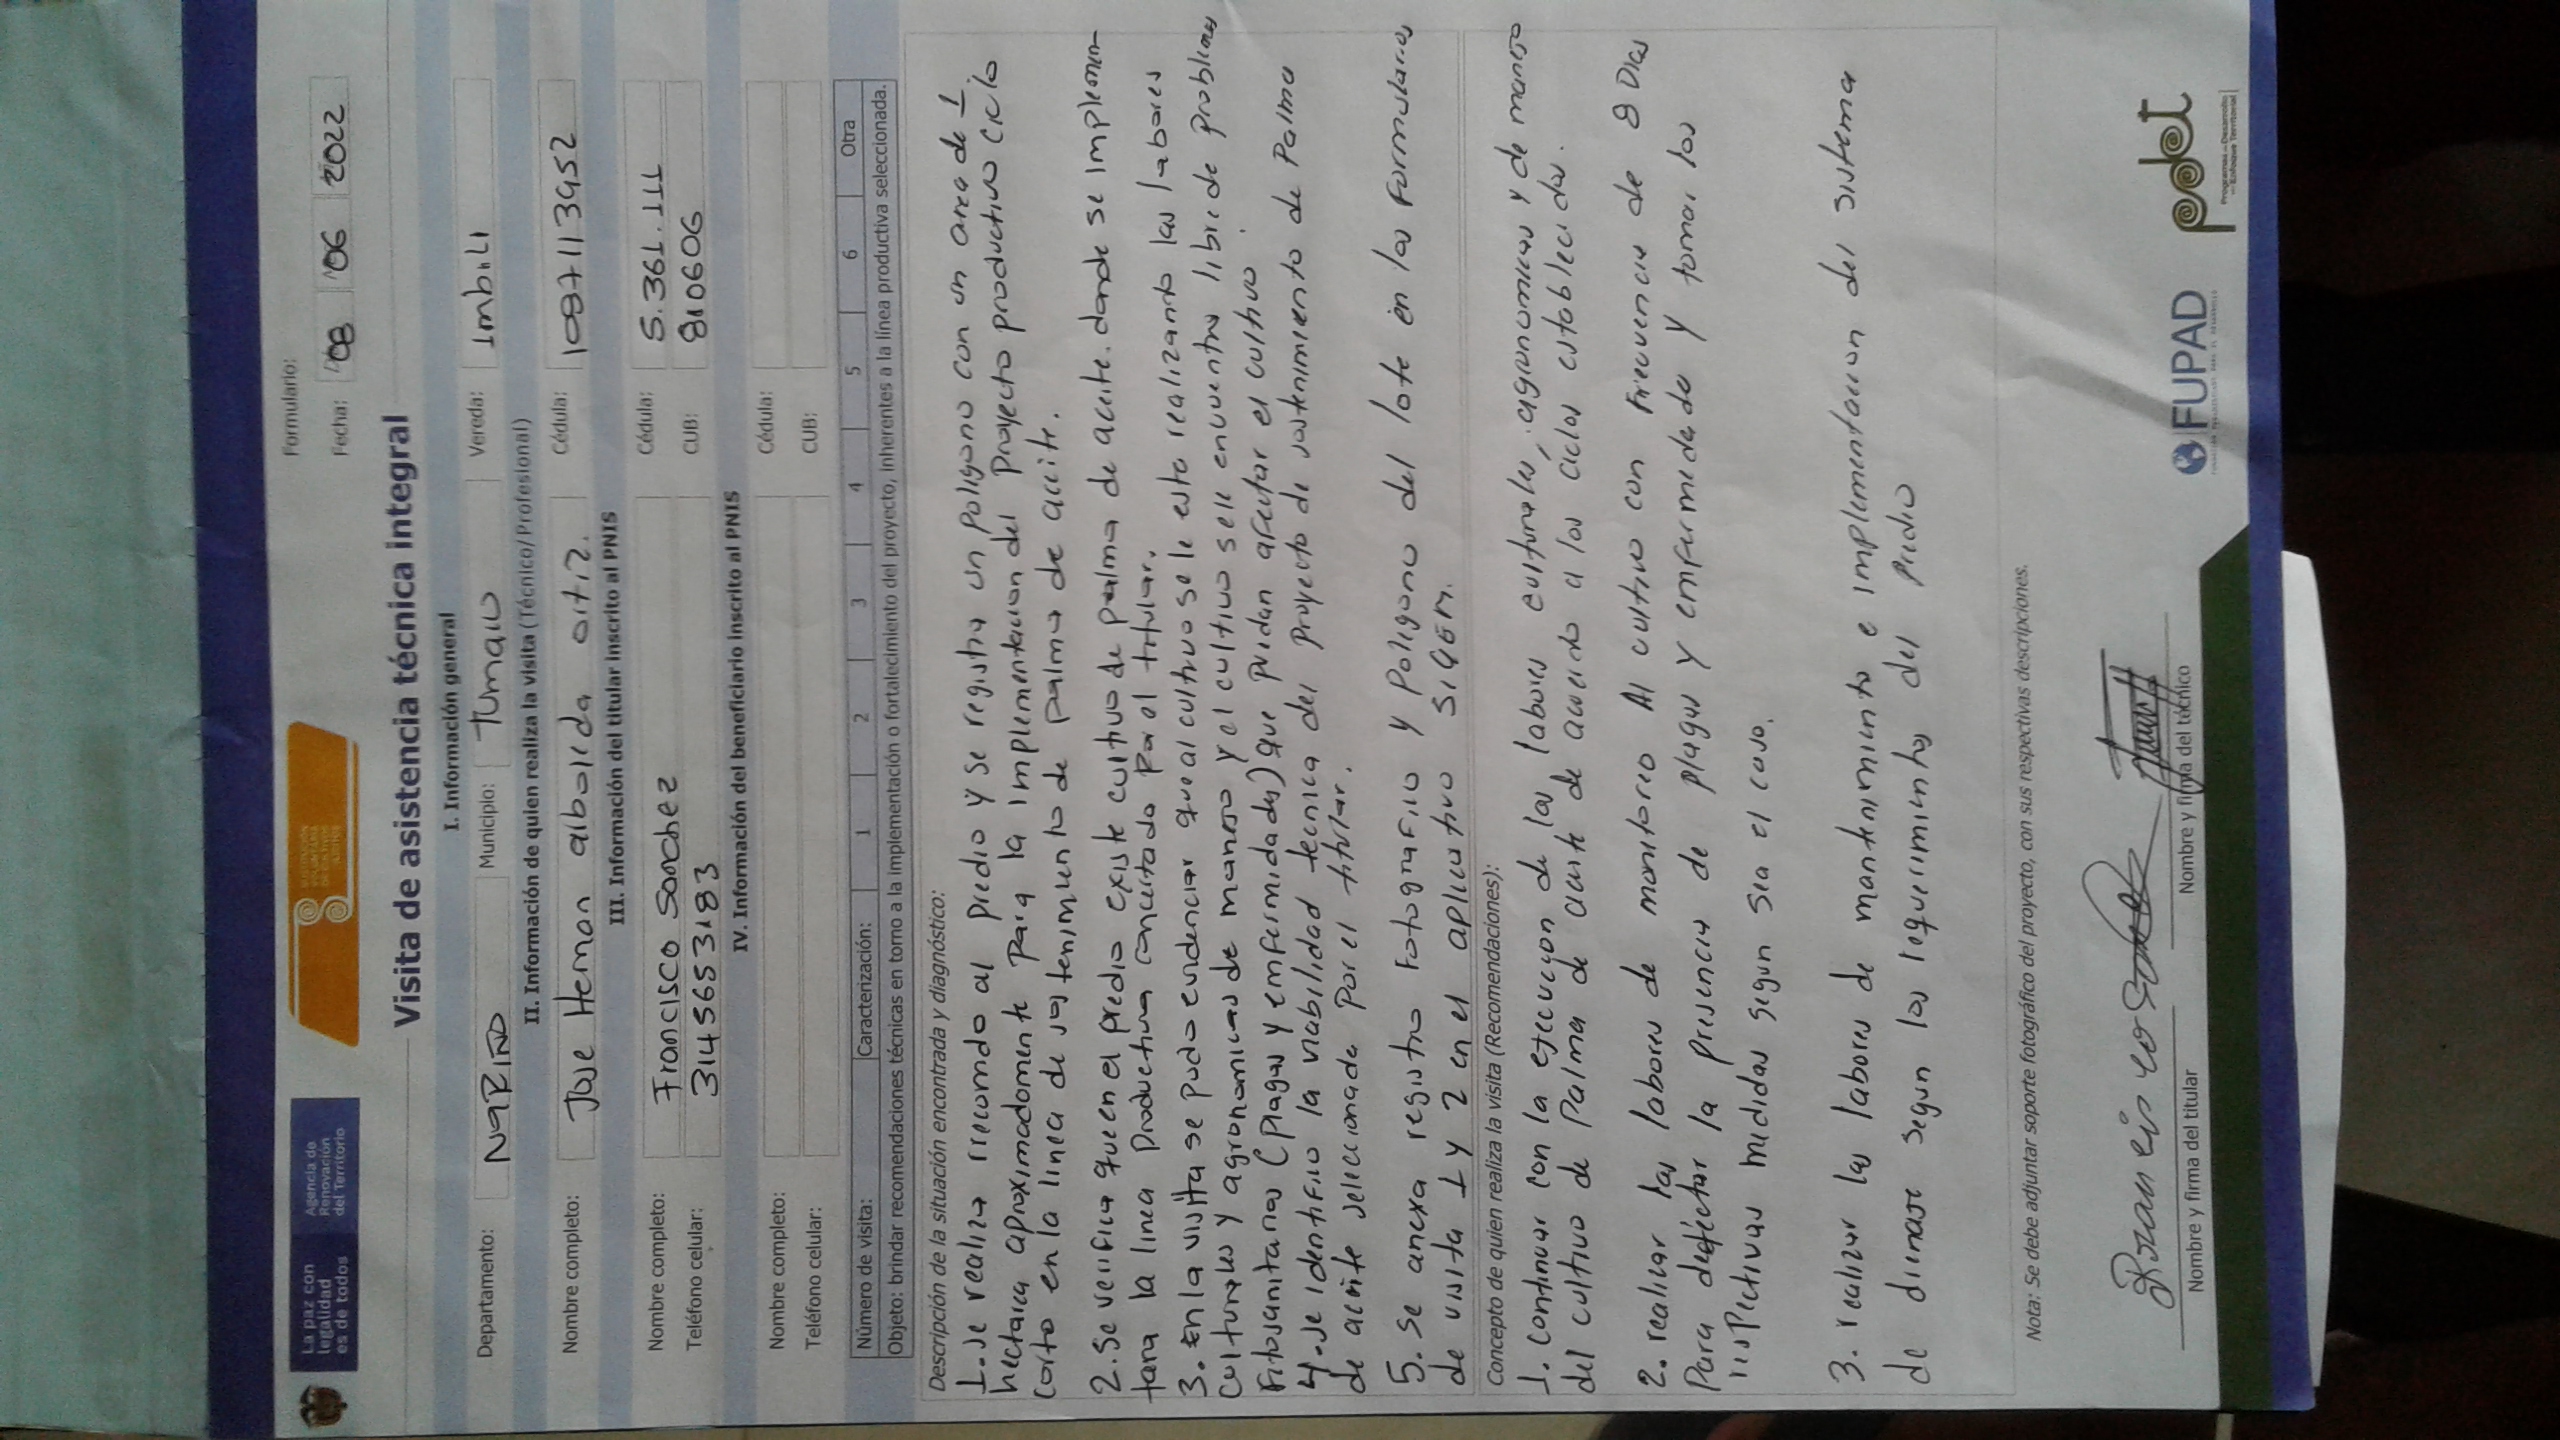 La paz con
legalidad
es de todos
Agencia de
Renovación
del Territorio
Formulario:
Fecha: 08 06 2022
Visita de asistencia técnica integral
I. Información general
Departamento: NaRIÑO Municipio: Tumaco Vereda: Imbili
II. Información de quien realiza la visita (Técnico/Profesional)
Nombre completo: Jose Hernan alboleda ortiz. Cédula: 1087113952
III. Información del titular inscrito al PNIS
Nombre completo: Francisco Sanchez Cédula: 5.361.111
Teléfono celular: 3145653183 CUB: 810606
IV. Información del beneficiario inscrito al PNIS
Nombre completo: Cédula:
Teléfono celular: CUB:
Número de visita: Caracterización: 1 2 3 4 5 6 Otra
Objeto: brindar recomendaciones técnicas en torno a la implementación o fortalecimiento del proyecto, inherentes a la línea productiva seleccionada.
Descripción de la situación encontrada y diagnóstico:
1-se realiza rrecorrido al predio y se registra un poligono con un area de 1
hectarea aproximadamente para la implementacion del proyecto productivo ciclo
corto en la linea de sostenimiento de palma de aceite.
2. Se verifica que en el predio existe cultivo de palma de aceite. donde se implemen-
tara la linea productiva concertada por el titular.
3. En la visita se pudo evidenciar que al cultivo se le esta realizando las labores
culturales y agronomicas de manejo y el cultivo se le encuentra libre de problemas
fitosanitarios (plagas y enfermidades) que puedan afectar el cultivo.
4-se identifico la viabilidad tecnica del proyecto de sostenimiento de Palma
de aceite seleccionada por el titular.
5. Se anexa registro fotografio y Poligono del lote en los formularios
de visita 1 y 2 en el aplicativo SIGEM.
Concepto de quien realiza la visita (Recomendaciones):
1. continuar con la ejecucyon de las labores culturales, agronomicas y de manejo
del cultivo de Palma de aceite de acuerdo a los ciclos establecidos.
2. realizar las labores de monitoreo Al cultivo con frecuencia de 8 Dias
Para detectar la presencia de plagas y enfermedades y tomar las
respectivas medidas segun sea el caso.
3. realizar las labores de mantenimiento e implementacion del sistema
de drenaje segun los requerimientos del predio
Nota: Se debe adjuntar soporte fotográfico del proyecto, con sus respectivas descripciones.
Nombre y firma del titular
Nombre y firma del técnico
FUPAD
pdet
Programas de Desarrollo
con Enfoque Territorial